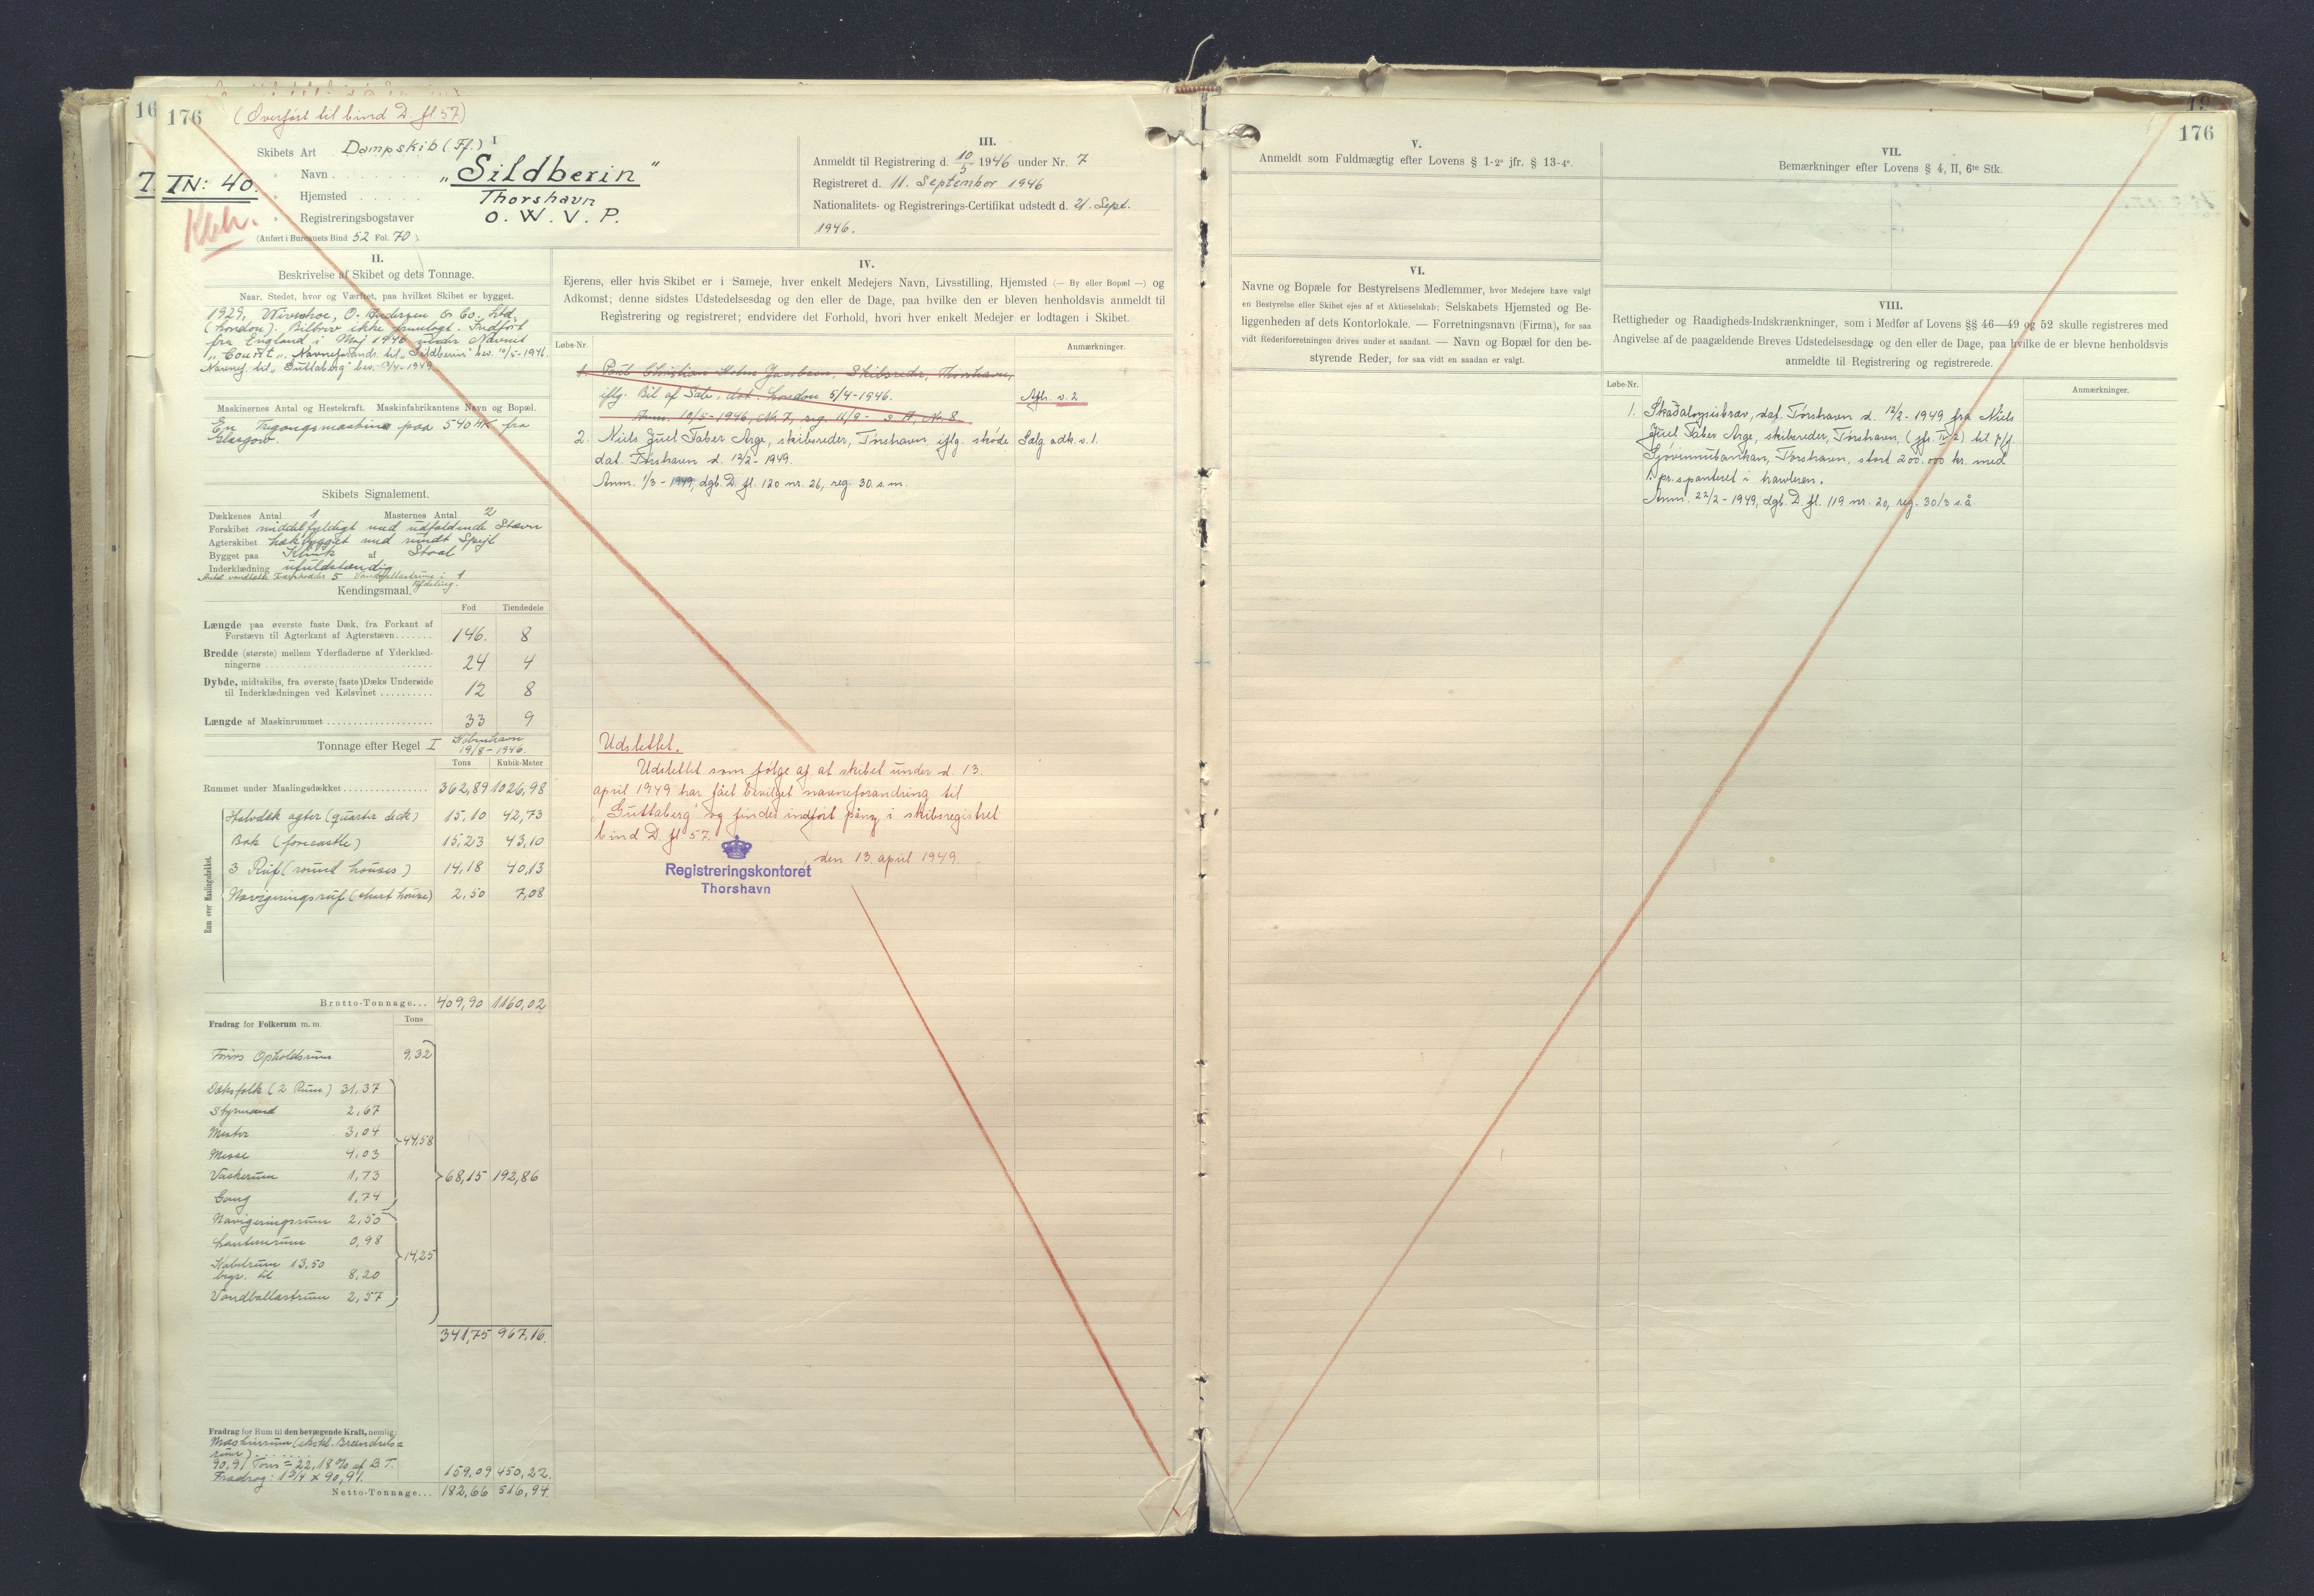 16
176
(Overført til bind D. fl 57)
I
Skibets Art Dampskib (Ff.)
" Navn "Sildberin"
7. TN: 40.
" Hjemsted Thorshavn
" Registreringsbogstaver O. W. V. P.
Kbh.
(Anført i Bureauets Bind 52 Fol. 70)
II.
Beskrivelse af Skibet og dets Tonnage.
Naar, Stedet, hvor og Værftet, paa hvilket Skibet er bygget.
1929, Wivenhoe, O. Andersen & Co. Ltd,
(London). Bilbrev ikke fremlagt. Indført
fra England i Maj 1946 under Navnet
"Courtt". Navneforandr. til "Sildberin" bev. 10/5-1946.
Navnef. til "Guttaberg" bev. 13/4-1949.
Maskinernes Antal og Hestekraft. Maskinfabrikantens Navn og Bopæl.
En Trigangsmaskine paa 540 HK fra
Glasgow.
Skibets Signalement.
Dækkenes Antal 1 Masternes Antal 2
Forskibet middelfyldigt med udfaldende Stævn
Agterskibet hækbygget med rundt Spejl
Bygget paa Klink af Staal
Inderklædning ufuldstændig
Antal vandtætte Tværskodder 5 Vandballastrum i 1
Afdeling.
Kendingsmaal.
Fod Tiendedele
Længde paa øverste faste Dæk, fra Forkant af
Forstævn til Agterkant af Agterstævn 146. 8
Bredde (største) mellem Yderfladerne af Yderklæd-
ningerne 24 4
Dybde, midtskibs, fra øverste (faste) Dæks Underside
til Inderklædningen ved Kølsvinet 12 8
Længde af Maskinrummet 33 9
Tonnage efter Regel I København
19/8-1946.
Tons Kubik-Meter
Rummet under Maalingsdækket 362,89 1026,98
Rum over Maalingsdækket.
Halvdæk agter (quarter deck) 15,10 42,73
Bak (forecastle) 15,23 43,10
3 Ruf (round houses) 14,18 40,13
Navigeringsruf (chart house) 2,50 7,08
Brutto-Tonnage... 409,90 1160,02
Fradrag for Folkerum m. m. Tons
Førers Opholdsrum 9,32
Dæksfolk (2 Rum) 31,37
Styrmand 2,67
Mester 3,04
44,58
Messe 4,03
Vaskerum 1,73
68,15 192,86
Gang 1,74
Navigeringsrum 2,50
Lanternrum 0,98
14,25
Kabelrum 13,50
begr. til 8,20
Vandballastrum 2,57
341,75 967,16
Fradrag for Rum til den bevægende Kraft, nemlig:
Maskinrum (ekskl. Brændsels=
rum)
90,91 Tons = 22,18 % af B T.
Fradrag: 1 3/4 x 90,91. 159,09 450,22.
Netto-Tonnage... 182,66 516,94.
III.
Anmeldt til Registrering d. 10/5 1946 under Nr. 7
Registreret d. 11. September 1946
Nationalitets- og Registrerings-Certifikat udstedt d. 21. Sept.
1946.
IV.
Ejerens, eller hvis Skibet er i Sameje, hver enkelt Medejers Navn, Livsstilling, Hjemsted (— By eller Bopæl —) og
Adkomst; denne sidstes Udstedelsesdag og den eller de Dage, paa hvilke den er bleven henholdsvis anmeldt til
Registrering og registreret; endvidere det Forhold, hvori hver enkelt Medejer er lodtagen i Skibet.
Løbe-Nr. Anmærkninger.
1. Poul Christian Holm Jacobsen, Skibsreder, Thorshavn,
iflg. Bil of Sale, dat. London 5/4-1946. Afh. v. 2
Anm. 10/5-1946, Nr. 7, reg. 11/9- s. A, No 8.
2. Niels Juel Taber Arge, skibsreder, Tórshavn, iflg. skøde Sælg. adk. v. 1.
dat. Tórshavn d. 12/2-1949.
Anm. 1/3-1949, dgb. D. fl. 120 nr. 26, reg. 30. s. m.
Udslettet.
Udslettet som følge af, at skibet under d. 13.
april 1949 har fået bevilget navneforandring til
"Guttaberg" og findes indført påny i skibsregistret
bind D. fl. 57.
, den 13. april 1949.
Registreringskontoret
Thorshavn
176
V.
Anmeldt som Fuldmægtig efter Lovens § 1-2° jfr. § 13-4°.
VI.
Navne og Bopæle for Bestyrelsens Medlemmer, hvor Medejere have valgt
en Bestyrelse eller Skibet ejes af et Aktieselskab; Selskabets Hjemsted og Be-
liggenheden af dets Kontorlokale. — Forretningsnavn (Firma), for saa
vidt Rederiforretningen drives under et saadant. — Navn og Bopæl for den be-
styrende Reder, for saa vidt en saadan er valgt.
VII.
Bemærkninger efter Lovens § 4, II, 6te Stk.
VIII.
Rettigheder og Raadigheds-Indskrænkninger, som i Medfør af Lovens §§ 46—49 og 52 skulle registreres med
Angivelse af de paagældende Breves Udstedelsesdage og den eller de Dage, paa hvilke de er blevne henholdsvis
anmeldte til Registrering og registrerede.
Løbe-Nr. Anmærkninger.
1. Skaðaloysisbræv, dat. Tórshavn d. 12/2-1949 frá Niels
Juel Taber Arge, skibsreder, Tórshavn, (jfr. IV 2) til P/f.
Sjóvinnubankan, Tórshavn, stort 200.000 kr. med
1. pr. spanteret i trawleren.
Anm. 22/2-1949, dgb. D. fl. 119 nr. 20, reg. 30/3 s. å.